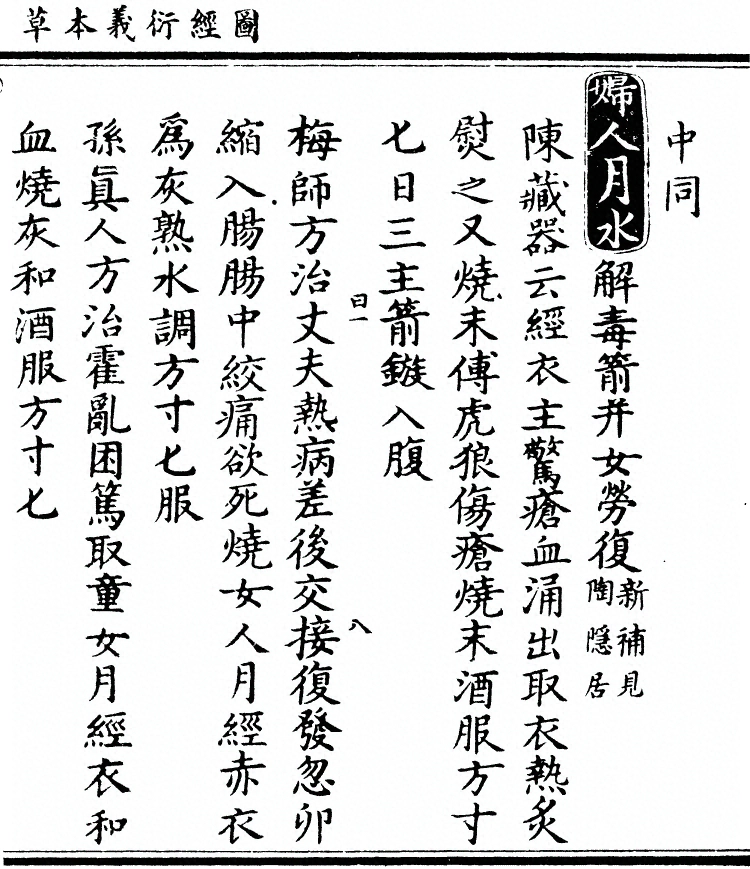 圖經衍義本草
中同
婦人月水解毒箭并女勞復新補見陶隱居
陳藏器云經衣主驚瘡血涌出取衣熱炙
熨之又燒末傅虎狼傷瘡燒末酒服方寸
匕日三主箭鏃入腹
曰一 八
梅師方治丈夫熱病差後交接復發忽卵
縮入腸腸中絞痛欲死燒女人月經赤衣
爲灰熟水調方寸匕服
孫眞人方治霍亂困篤取童女月經衣和
血燒灰和酒服方寸匕